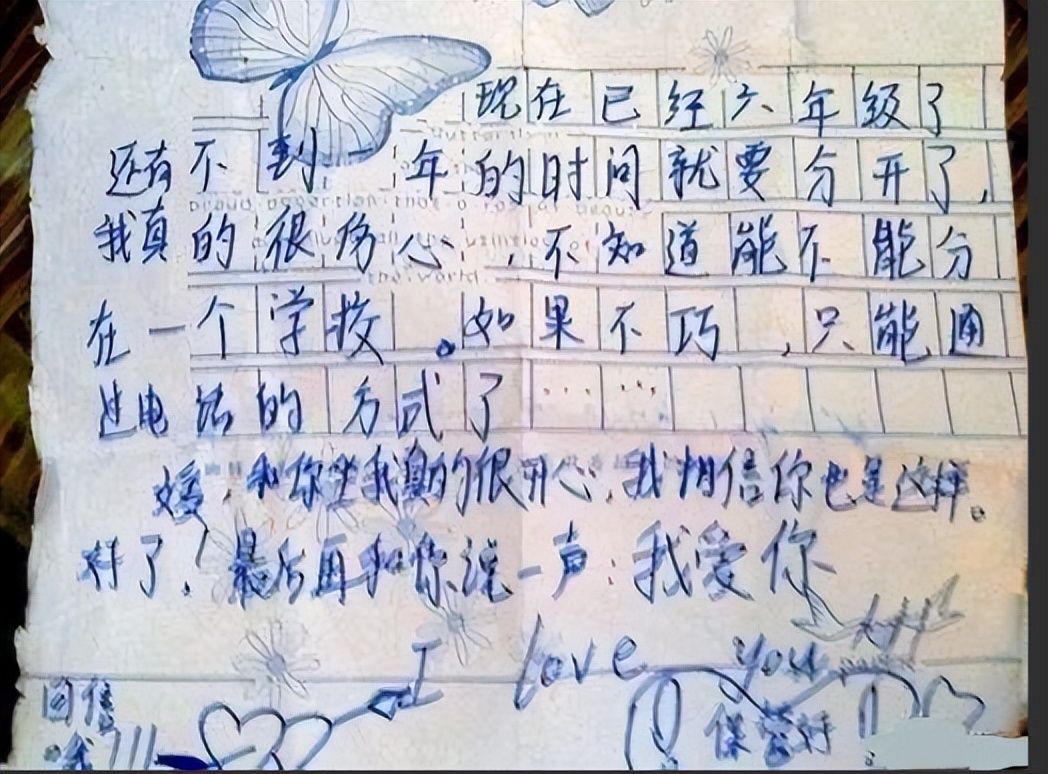 现在已经六年级了
还有不到一年的时间就要分开了,
我真的很伤心,不知道能不能分
在一个学校。如果不巧,只能通
过电话的方式了……
媛,和你坐我真的很开心,我相信你也是这样。
好了!最后再和你说一声:我爱你
I love you
回信
哦!!!
保管好